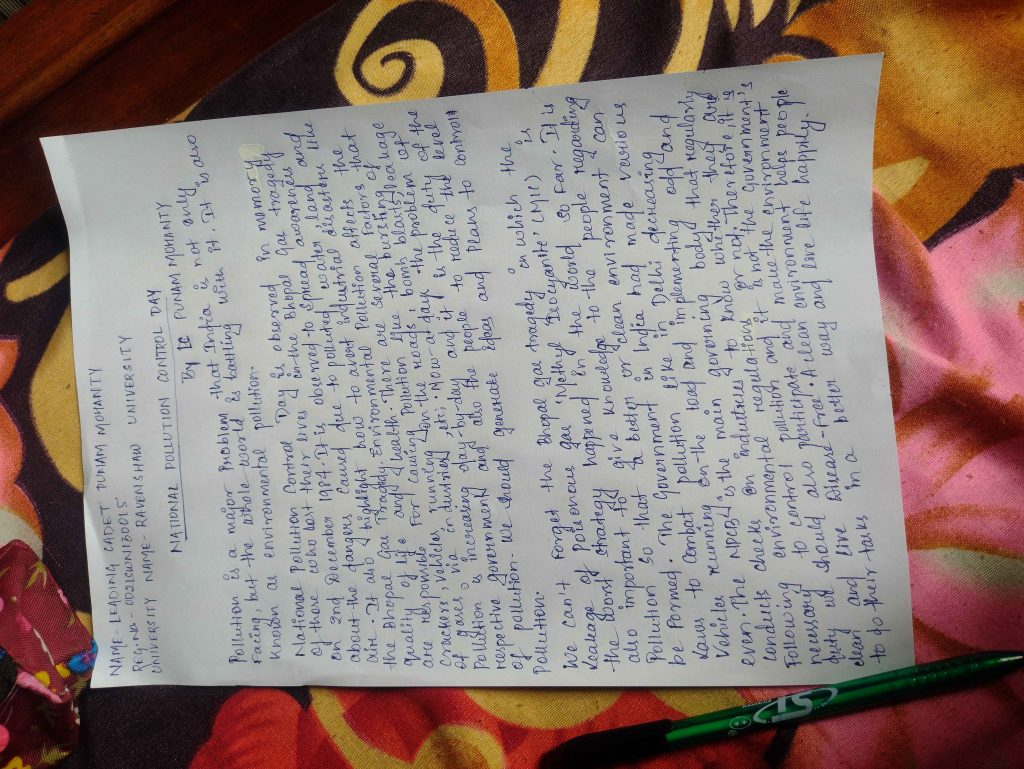 NAME- LEADING CADET PUNAM MOHANTY
REG.NO- OD21SWN1300015
UNIVERSITY NAME- RAVENSHAW UNIVERSITY
NATIONAL POLLUTION CONTROL DAY
By LC PUNAM MOHANTY
Pollution is a major problem that India is not only
facing, but the whole world is battling with it. It is also
known as environmental pollution.
National Pollution Control Day is observed in memory
of those who lost their lives in the Bhopal Gas tragedy
on 2nd December 1984. It is observed to spread awareness
about the dangers caused due to polluted water, land and
air. It also highlight how to avoid industrial disasters like
the Bhopal Gas Tragedy. Environmental Pollution affects the
quality of life and health. There are several factors that
are responsible for causing Pollution like the bursting of
crackers, vehicles running on the roads, bomb blasts, leakage
of gases, via industries, etc. Now-a-days the problem of
Pollution is increasing day-by-day and it is the duty of the
respective government and also the people to reduce the level
of pollution. We should generate ideas and plans to control
pollution.
We can't forget the Bhopal gas tragedy in which the
leakage of poisonous gas 'Methyl Isocyanite' (MIC) is
the worst strategy happened in the world so far. It is
also important to give knowledge to the people regarding
Pollution so that a better or clean environment can
be formed. The Government in India had made various
laws to combat pollution like in Delhi decreasing
vehicles running on the road and implementing odd and
even. The NPCB is the main governing body that regularly
conducts checks on industries to know whither they are
following environmental regulations or not. Therefore, it is
necessary to control pollution and it is not the Government's
duty we should also participate and make the environment
clean and live Disease-free. A clean environment helps people
to do their tasks in a better way and live life happily.